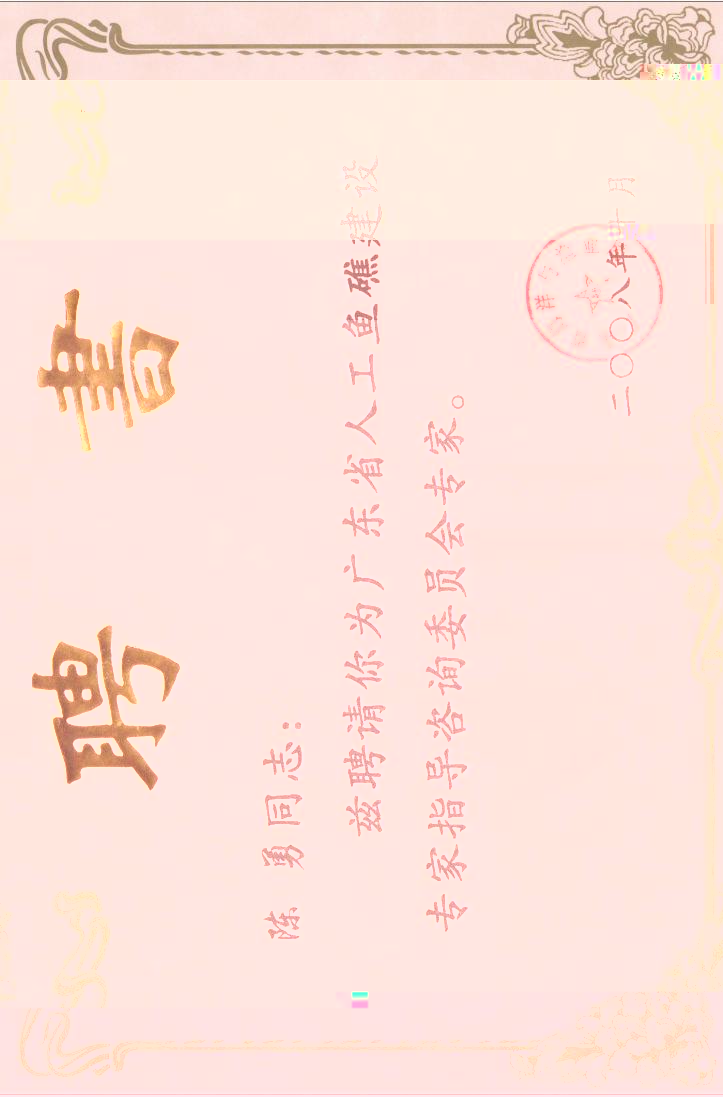 聘 書
陈 勇同志：
兹聘请你为广东省人工鱼礁建设
专家指导咨询委员会专家。
二〇〇八年叶月